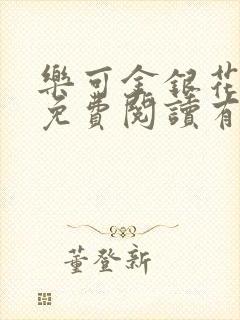 樂可金銀花
免費閱讀有
董登新